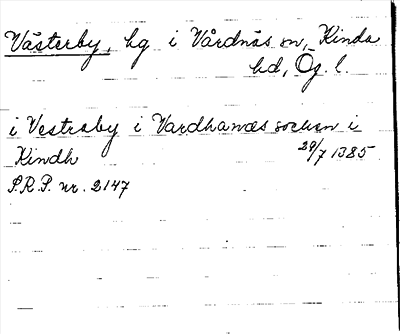 Västerby, hg i Vårdnäs sn, Kinda
hd, Ög. l.
i Vestraby i Vardhanæs socken i
Kindh 29/7 1385
S.R.P. nr. 2147